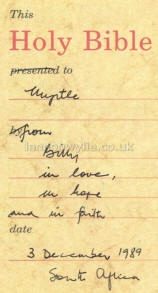 This
Holy Bible
presented to
Myrtle
by from
Billy
in love,
in hope
and in faith
date
3 December 1989
South Africa